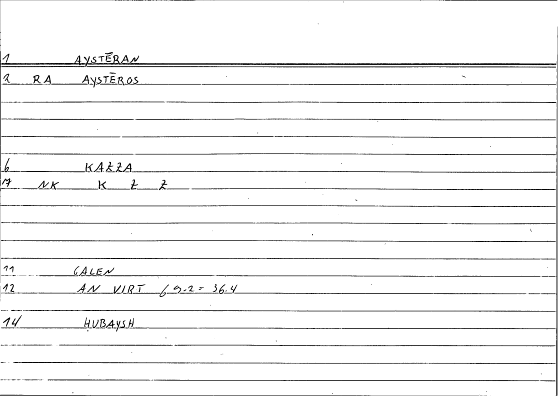 1 AYSTĒRAN
2 RA AYSTĒROS
6 KAŻŻA
7 NK K Ż Ż
11 GALEN
12 AN VIRT 69.2 = 36.4
14 HUBAYSH